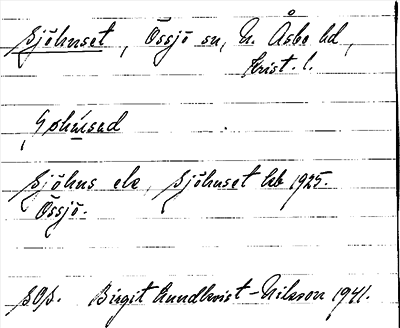 Sjöhuset, Össjö sn, N. Åsbo hd,
Krist. l.
Sjöhus ek, Sjöhuset kb 1925.
Össjö.
SOS. Birgit Lundkvist-Nilsson 1941.